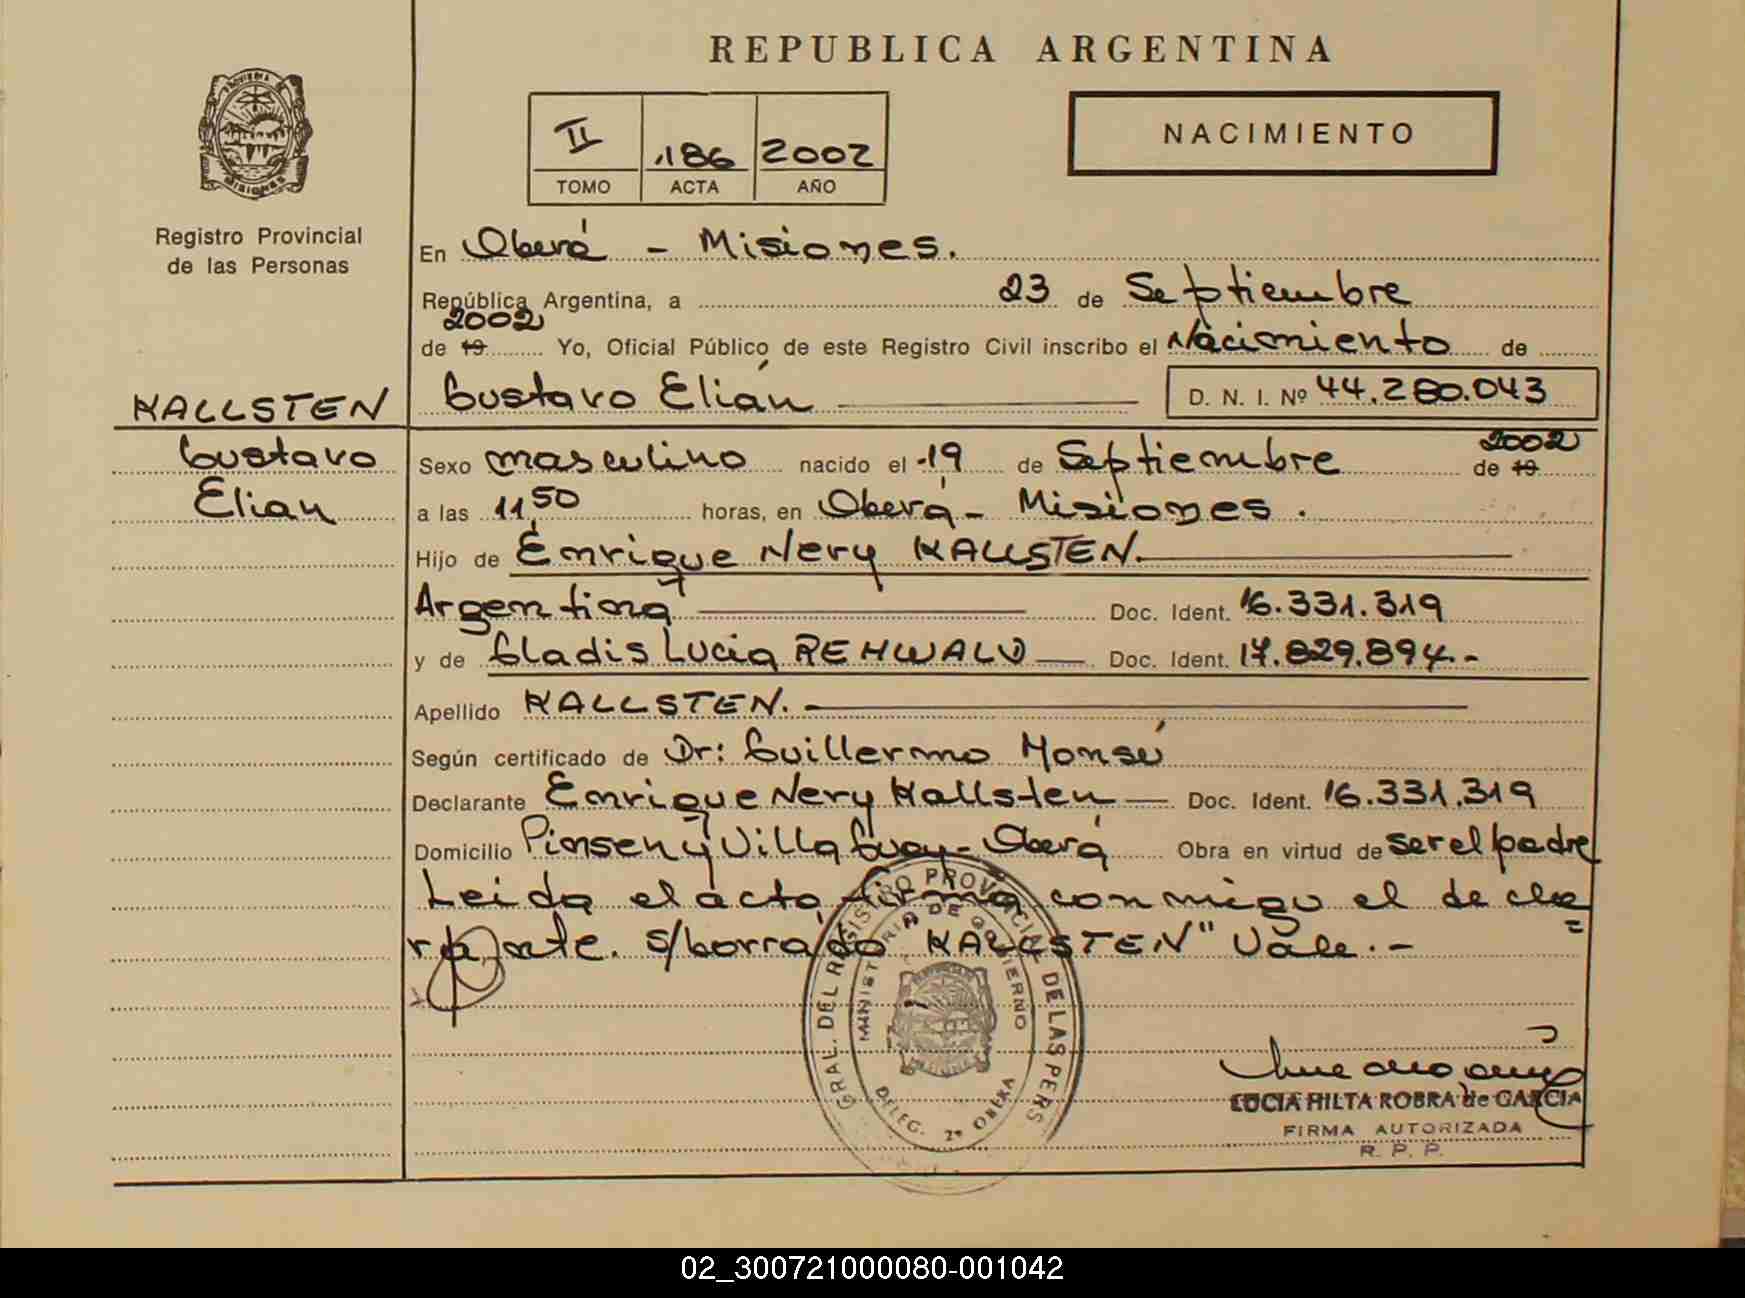 REPUBLICA ARGENTINA
PROVINCIA
MISIONES
Registro Provincial
de las Personas
II 186 2002
TOMO ACTA AÑO
NACIMIENTO
En Oberá - Misiones.
República Argentina, a 23 de Septiembre
2002
de 19 Yo, Oficial Público de este Registro Civil inscribo el Nacimiento de
KALLSTEN Gustavo Elián D. N. I. Nº 44.280.043
Gustavo Sexo masculino nacido el 19 de Septiembre de 19 2002
Elian a las 11,50 horas, en Oberá - Misiones.
Hijo de Enrique Nery KALLSTEN.
Argentina Doc. Ident. 16.331.319
y de Gladis Lucia REHWALD Doc. Ident. 17.829.894.-
Apellido KALLSTEN.
Según certificado de Dr: Guillermo Monsú
Declarante Enrique Nery Kallsten Doc. Ident. 16.331.319
Domicilio Pinsen y Villa Guay - Oberá Obra en virtud de ser el padre
Leida el acta, firma conmigo el decla=
rante. s/borrado KALLSTEN" Vale.-
GRAL. DEL REGISTRO PROVINCIAL DE LAS PERS
MINISTERIO DE GOBIERNO
DELEG. 2ª OBERA
LUCIA HILTA ROBRA de GARCIA
FIRMA AUTORIZADA
R. P. P.
02_300721000080-001042